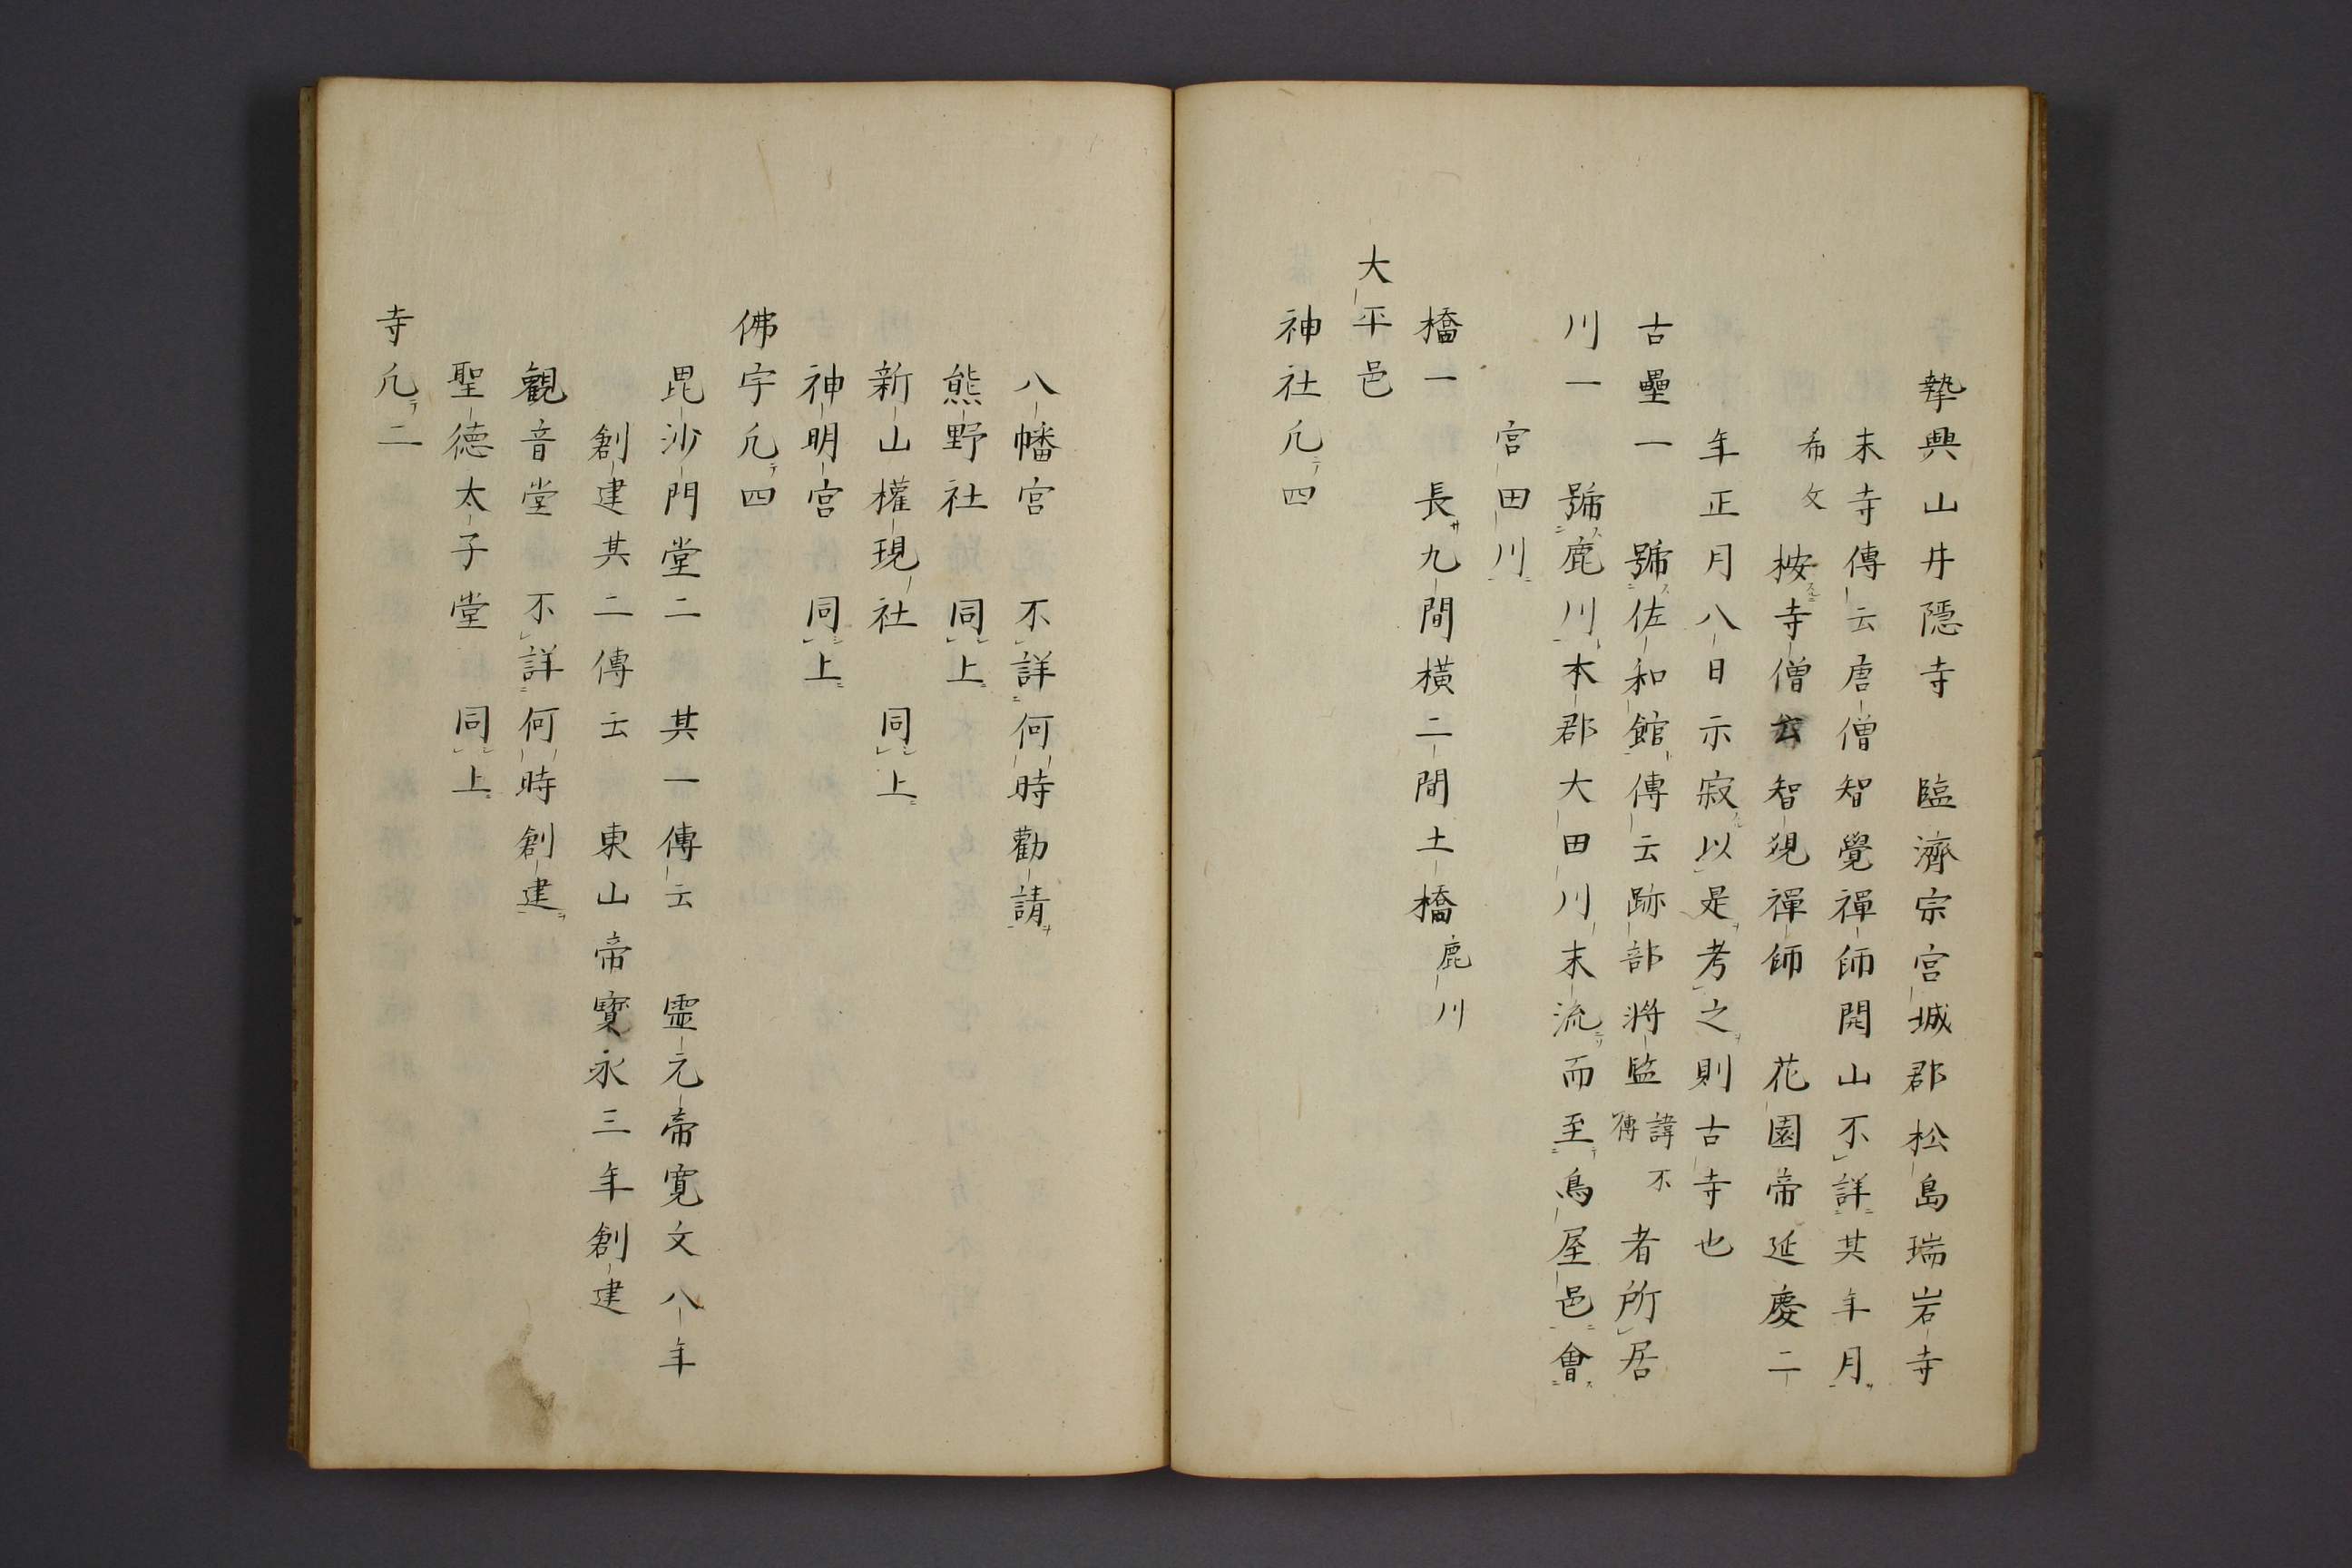 執興山井隱寺　臨濟宗宮城郡松島瑞岩寺
末寺傳云唐僧智覺禪師開山不詳其年月
希文　按寺僧云智覺禪師　花園帝延慶二
年正月八日示寂以是考之則古寺也
古壘一　號佐和館傳云跡部將監諱不傳者所居
川一　號鹿川本郡大田川末流而至鳥屋邑會
宮田川
橋一　長九間橫二間土橋鹿川
大平邑
神社凢四
八幡宮　不詳何時勸請
熊野社　同上
新山權現社　同上
神明宮　同上
佛宇凢四
毘沙門堂二　其一傳云　霊元帝寛文八年
創建其二傳云　東山帝寳永三年創建
觀音堂　不詳何時創建
聖德太子堂　同上
寺凢二